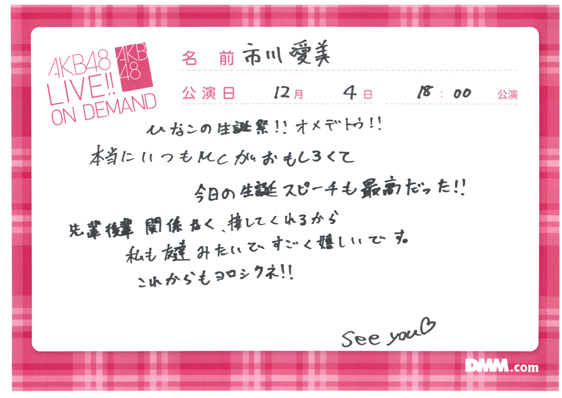 AKB48
LIVE!!
ON DEMAND
AKB
48
名 前 市川愛美
公演日 12月 4日 18:00 公演
ひなこの生誕祭!! オメデトウ!!
本当にいつもMCがおもしろくて
今日の生誕スピーチも最高だった!!
先輩後輩 関係なく、接してくれるから
私も友達みたいですごく嬉しいです。
これからもヨロシクネ!!
See you♡
DMM.com